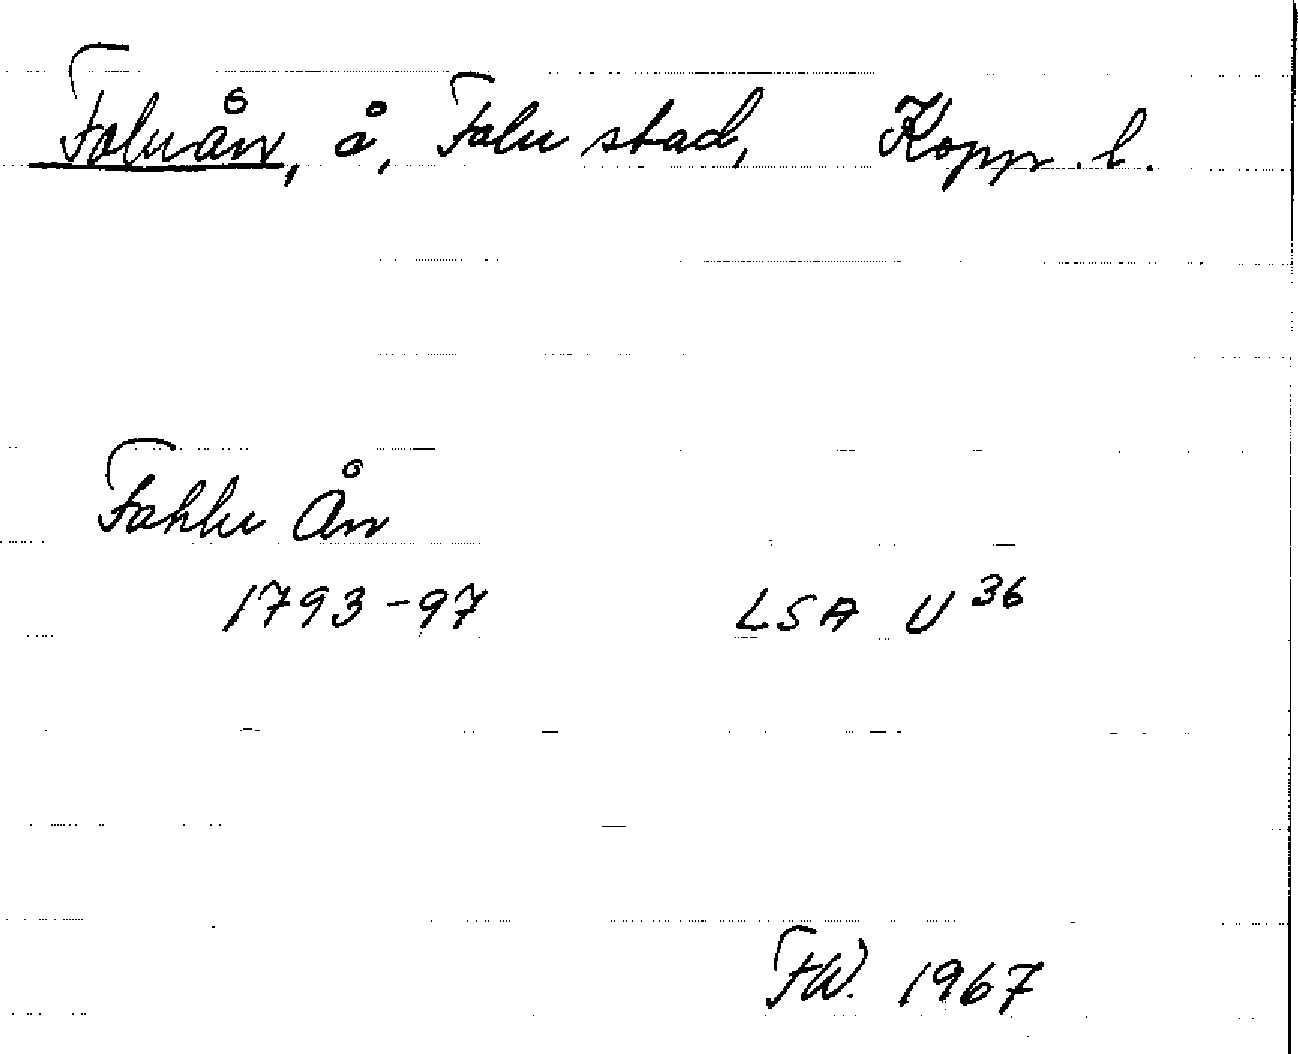 Faluån, å, Falu stad, Kopp. l.
Fahlu Ån
1793-97 LSA U 36
FW. 1967